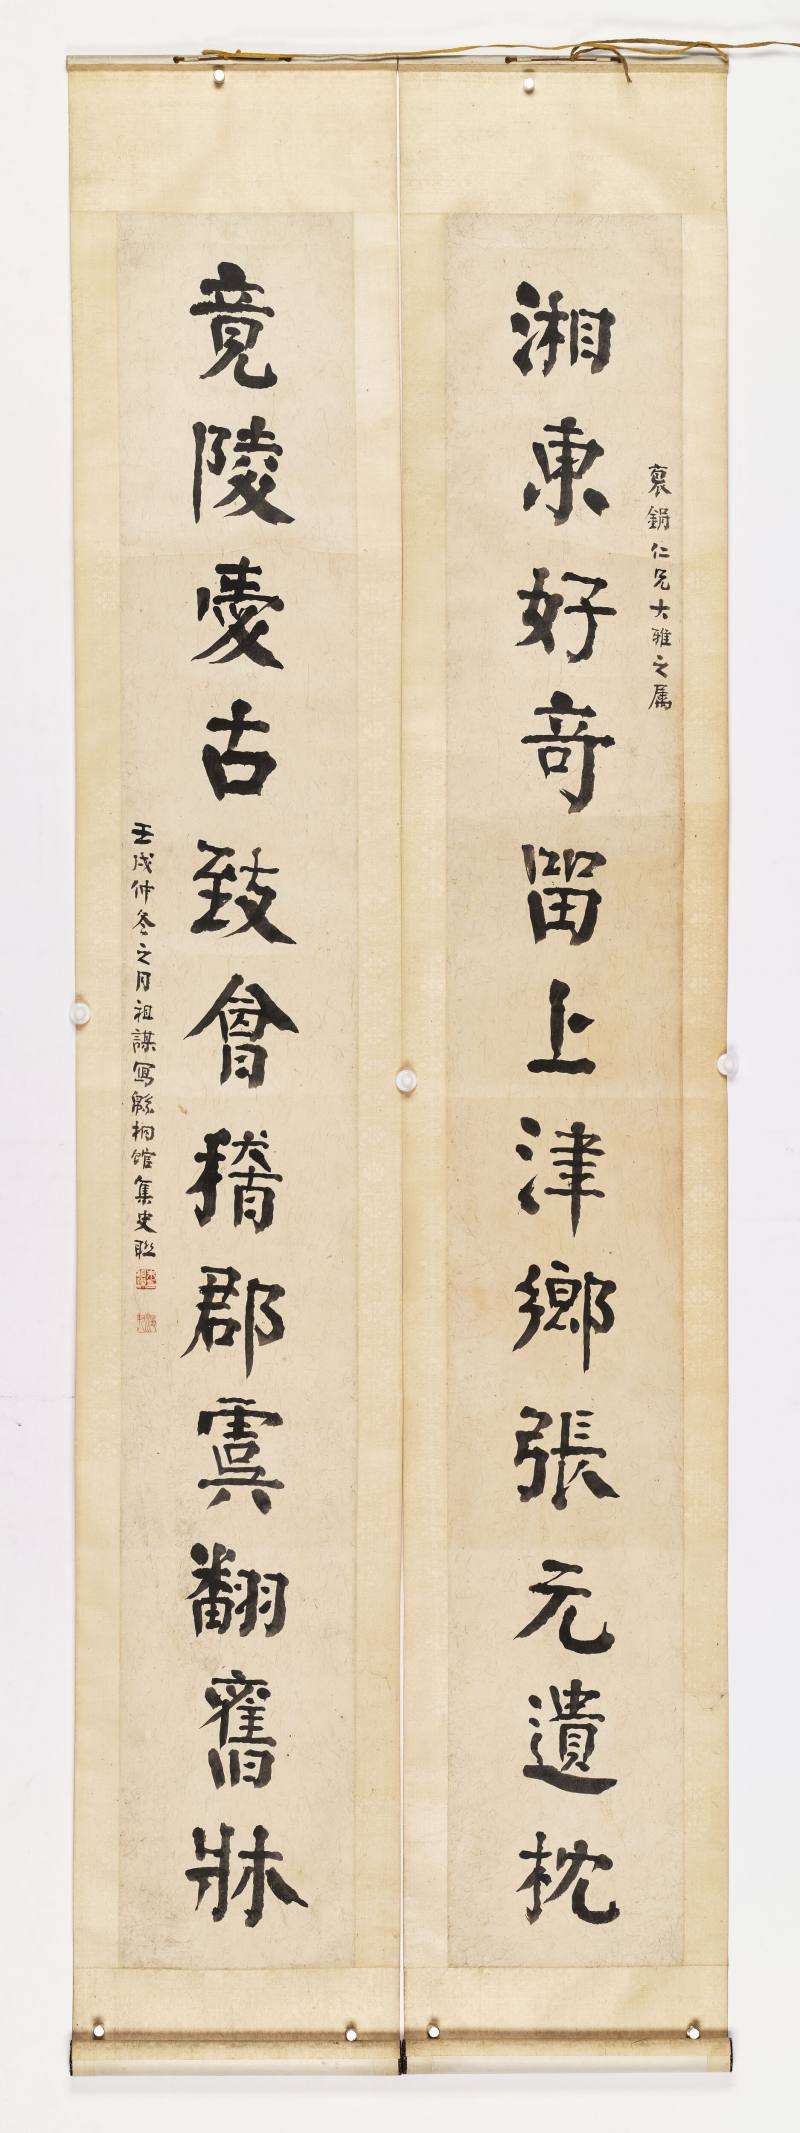 湘東好奇留上津鄉張元遺枕
裒鋗仁兄大雅之属
竟陵愛古致會稽郡虞翻舊牀
壬戌仲冬之月祖謀寫緜桐館集史聯